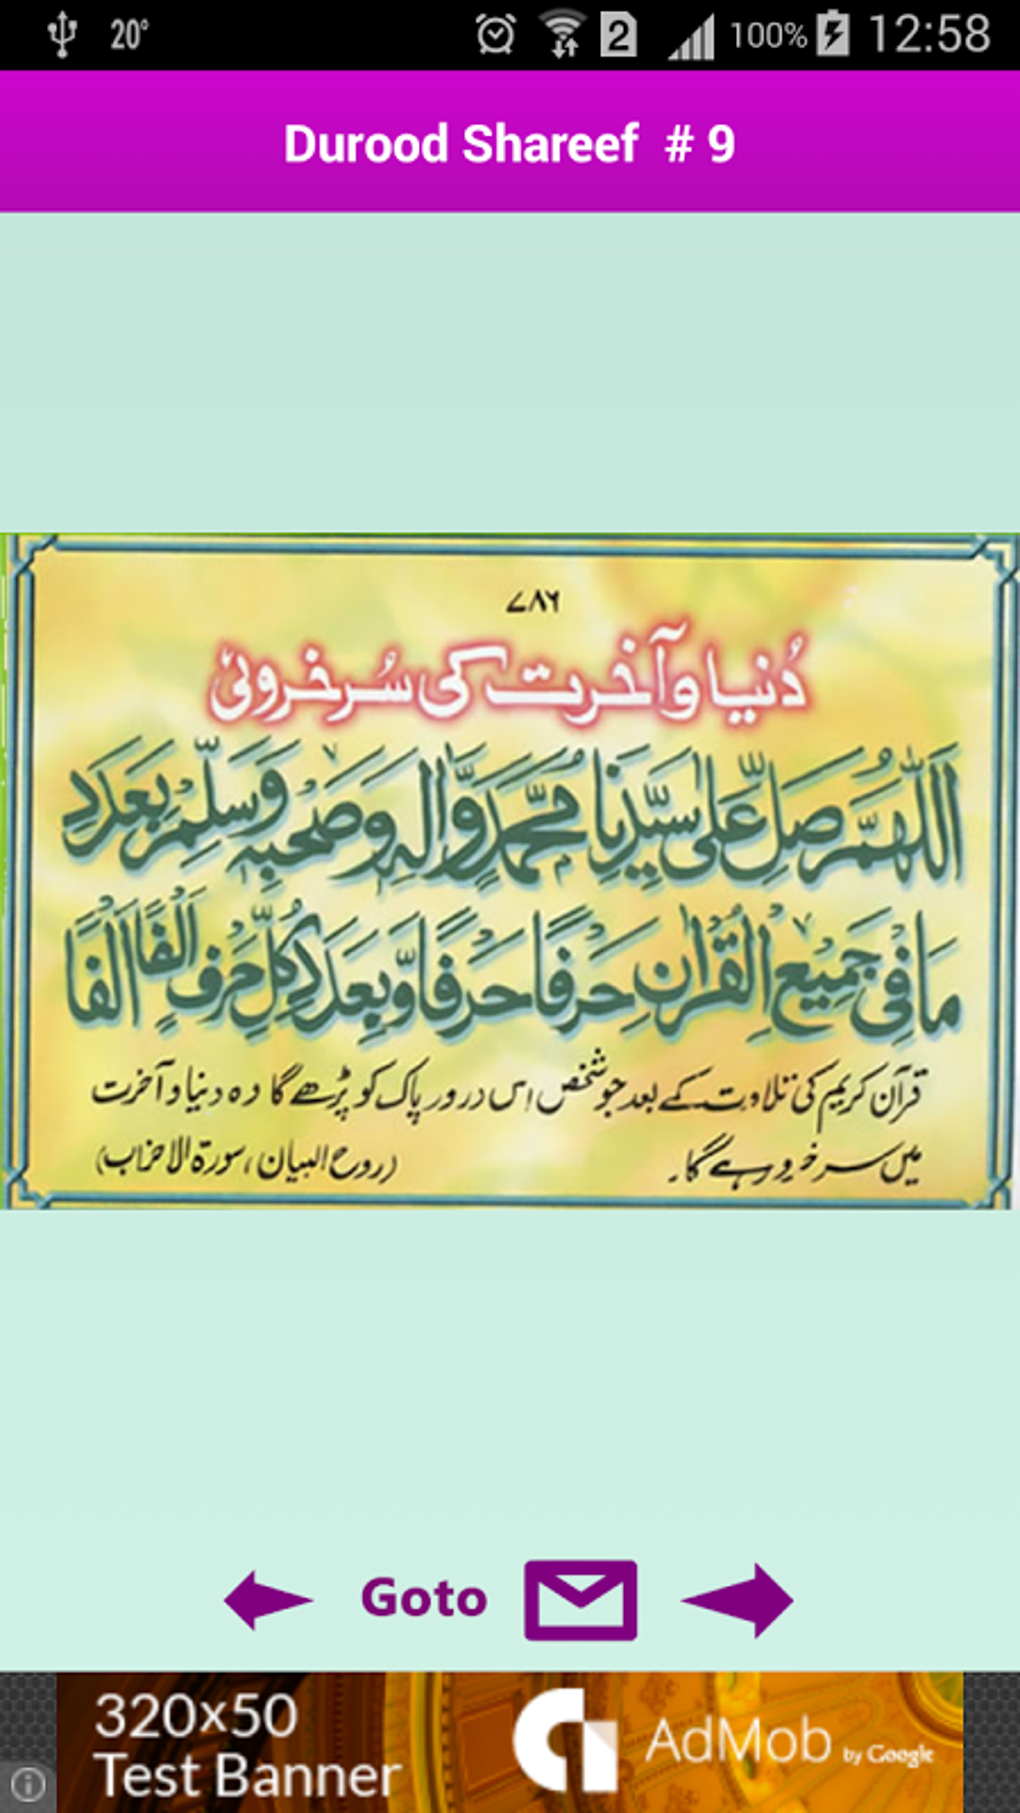 20°
2
100%
12:58
Durood Shareef # 9
۷۸۶
دُنیا و آخرت کی سُرخروئی
اَللّٰهُمَّ صَلِّ عَلٰى سَيِّدِنَا مُحَمَّدٍ وَّاٰلِهٖ وَصَحْبِهٖ وَسَلِّمْ بِعَدَدِ
مَا فِيْ جَمِيْعِ الْقُرْاٰنِ حَرْفًا حَرْفًا وَّبِعَدَدِ كُلِّ حَرْفٍ اَلْفًا اَلْفًا
قرآن کریم کی تلاوت کے بعد جو شخص اس درور پاک کو پڑھے گا وہ دنیا و آخرت
میں سرخرو رہے گا۔ (روح البیان، سورۃ الاحزاب)
Goto
320x50
Test Banner
AdMob by Google